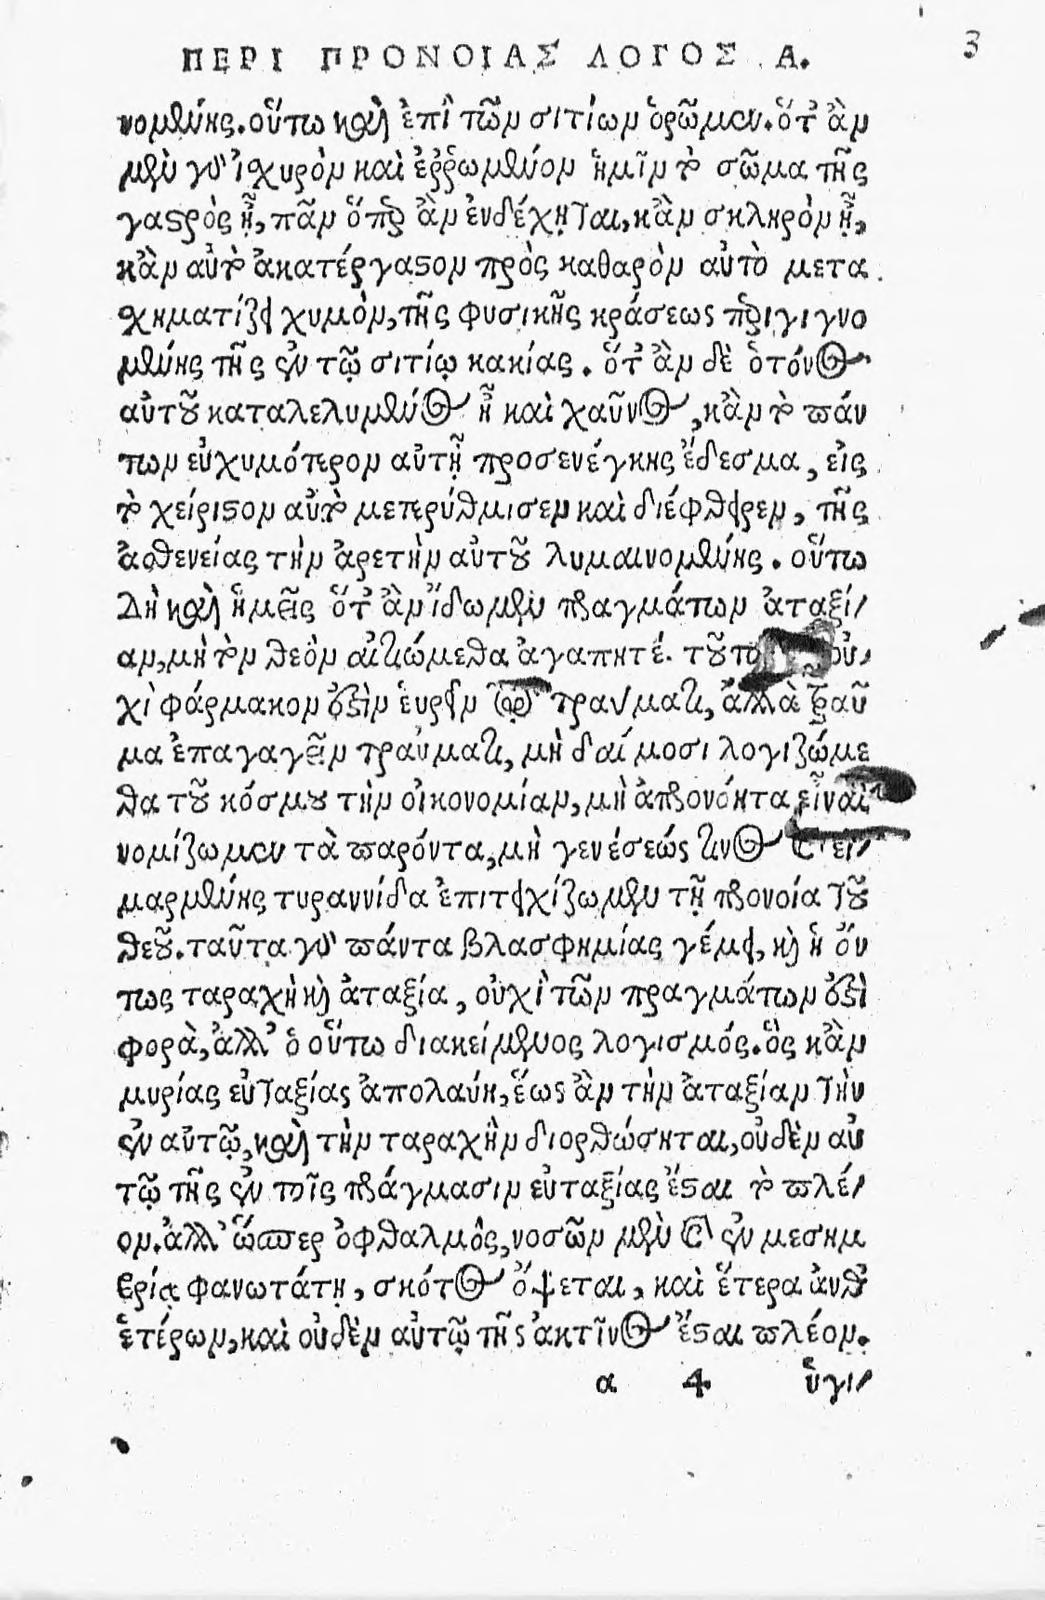 ΠΕΡΙ ΠΡΟΝΟΙΑΣ ΛΟΓΟΣ Α. 3
νομένης. οὕτω καὶ ἐπὶ τῶν σιτίων ὁρῶμεν. ὅτ' ἂν
μὲν γὰρ ἰσχυρὸν καὶ ἐρρωμένον ἡμῖν τὸ σῶμα τῆς
γαστρὸς ᾖ, πᾶν ὅπερ ἂν ἐνδέχηται, κἂν σκληρὸν ᾖ,
κἂν αὐτὸ ἀκατέργαστον πρὸς καθαρὸν αὐτὸ μετα
σχηματίζει χυμὸν, τῆς φυσικῆς κράσεως περιγιγνο
μένης τῆς ἐν τῷ σιτίῳ κακίας. ὅτ' ἂν δὲ ὁ τόνος
αὐτοῦ καταλελυμένος ᾖ καὶ χαῦνος, κἂν τὸ πάν
των εὐχυμότερον αὐτῇ προσενέγκῃς ἔδεσμα, εἰς
τὸ χείριστον αὐτὸ μετερύθμισεν καὶ διέφθειρεν, τῆς
ἀσθενείας τὴν ἀρετὴν αὐτοῦ λυμαινομένης. οὕτω
Δὴ καὶ ἡμεῖς ὅτ' ἂν ἴδωμεν πραγμάτων ἀταξί/
αν, μὴ τὸν θεὸν αἰτιώμεθα ἀγαπητέ. τοῦτο οὐ,
χὶ φάρμακον ἐστὶν εὑρεῖν τραύματι, ἀλλὰ τραῦ
μα ἐπαγαγεῖν τραύματι, μὴ δαίμοσι λογιζώμε
θα τοῦ κόσμου τὴν οἰκονομίαν, μὴ ἀπρονόητα εἶναι
νομίζωμεν τὰ παρόντα, μὴ γενέσεώς τινος εἱ/
μαρμένης τυραννίδα ἐπιτειχίζωμεν τῇ προνοίᾳ τοῦ
θεοῦ. ταῦτα γὰρ πάντα βλασφημίας γέμει, καὶ ἡ ὄν
τως ταραχὴ καὶ ἀταξία, οὐχὶ τῶν πραγμάτων ἐστὶ
φορὰ, ἀλλ' ὁ οὕτω διακείμενος λογισμός. ὃς κἂν
μυρίας εὐταξίας ἀπολαύῃ, ἕως ἂν τὴν ἀταξίαν τὴν
ἐν αὐτῷ, καὶ τὴν ταραχὴν διορθώσηται, οὐδὲν αὐ
τῷ τῆς ἐν τοῖς πράγμασιν εὐταξίας ἔσται τὸ πλέ/
ον. ἀλλ' ὥσπερ ὀφθαλμὸς, νοσῶν μὲν καὶ ἐν μεσημ
βρίᾳ φανωτάτῃ, σκότος ὄψεται, καὶ ἕτερα ἀνθ'
ἑτέρων, καὶ οὐδὲν αὐτῷ τῆς ἀκτῖνος ἔσται πλέον.
α 4. ὑγι/